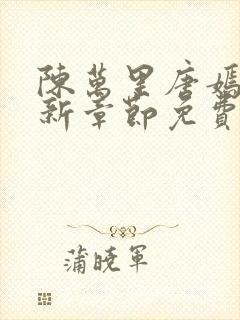 陳萬里唐嫣
新章節免費
蒲曉軍